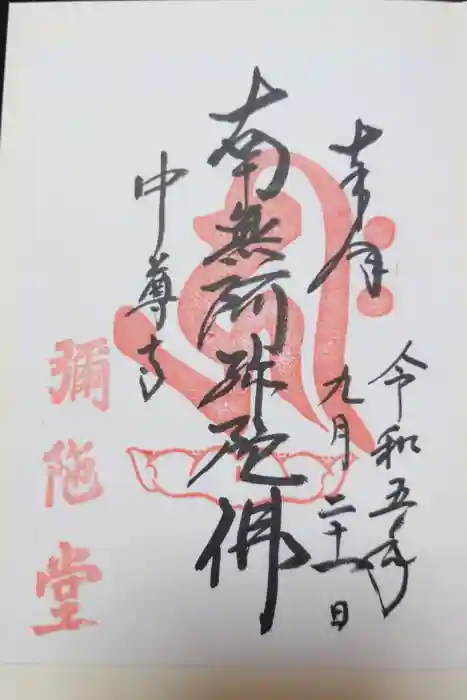 奉拝
令和五年
九月二十一日
南無阿弥陀佛
中尊寺
彌陀堂